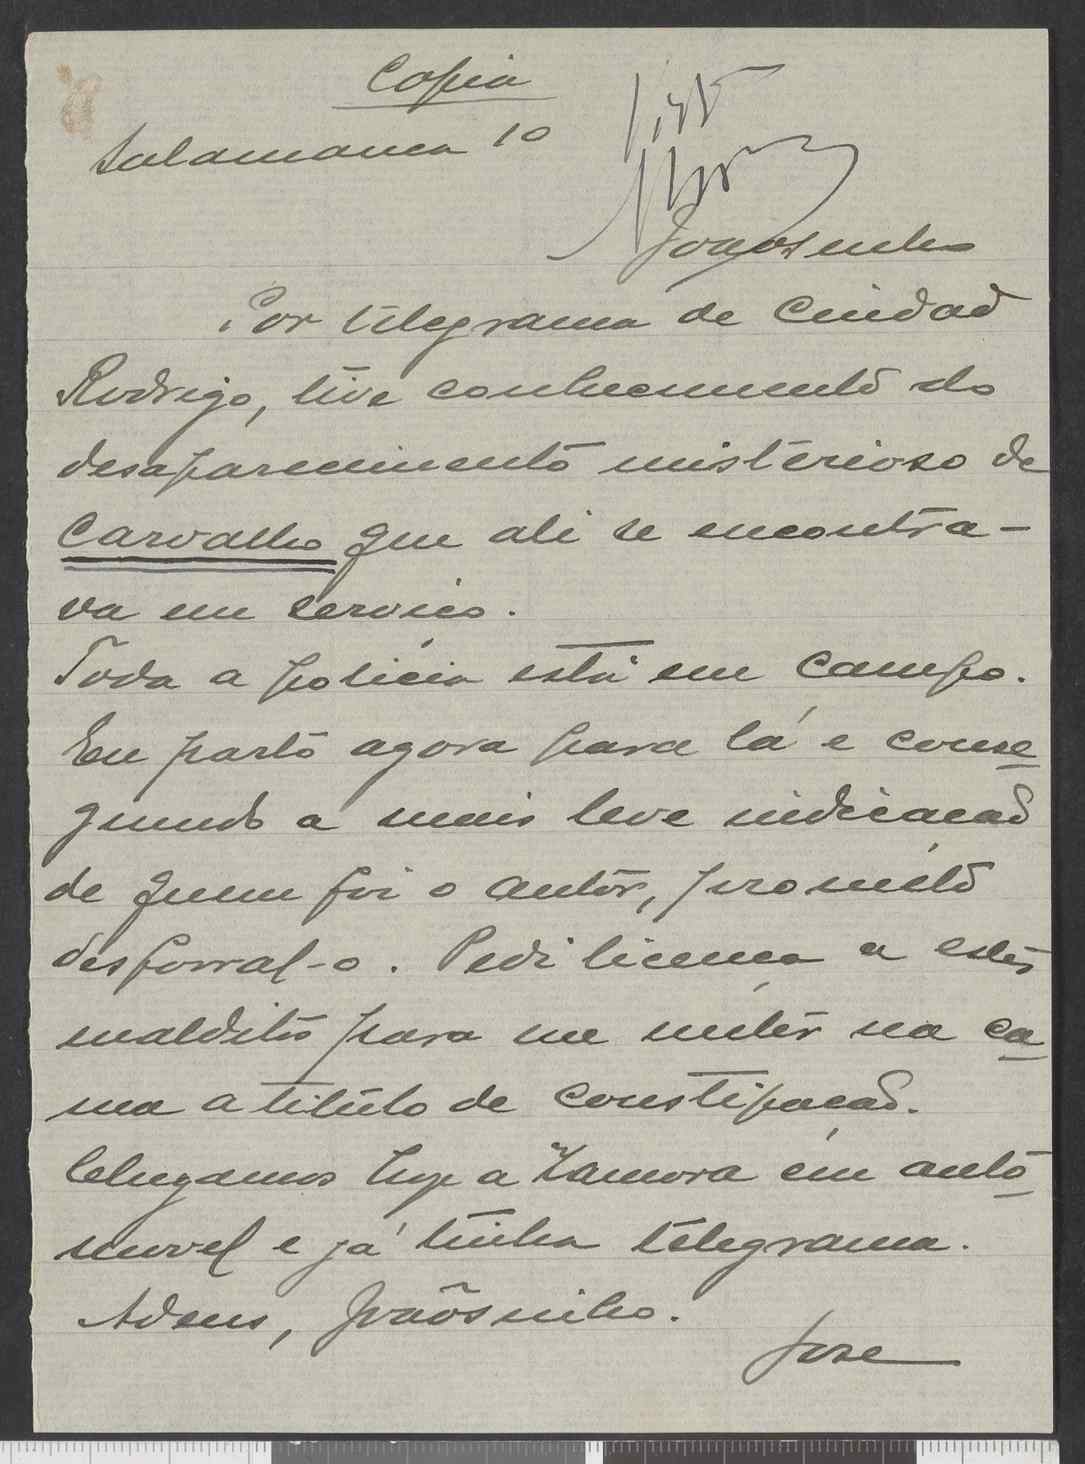 Copia
Salamanca 10
Visto
Joaosinho
Por telegrama de Ciudad
Rodrigo, tive conhecimento do
desaparecimento misterioso de
Carvalho que ali se encontra-
va em serviço.
Toda a policia está em campo.
Eu parto agora para lá e conse
guindo a mais leve indicação
de quem foi o autor, prometo
desforral-o. Pedi licença a estes
malditos para me meter na ca
ma a titulo de constipação.
Chegamos hoje a Zamora em auto
movel e já tinha telegrama.
Adeus, Joãosinho.
José